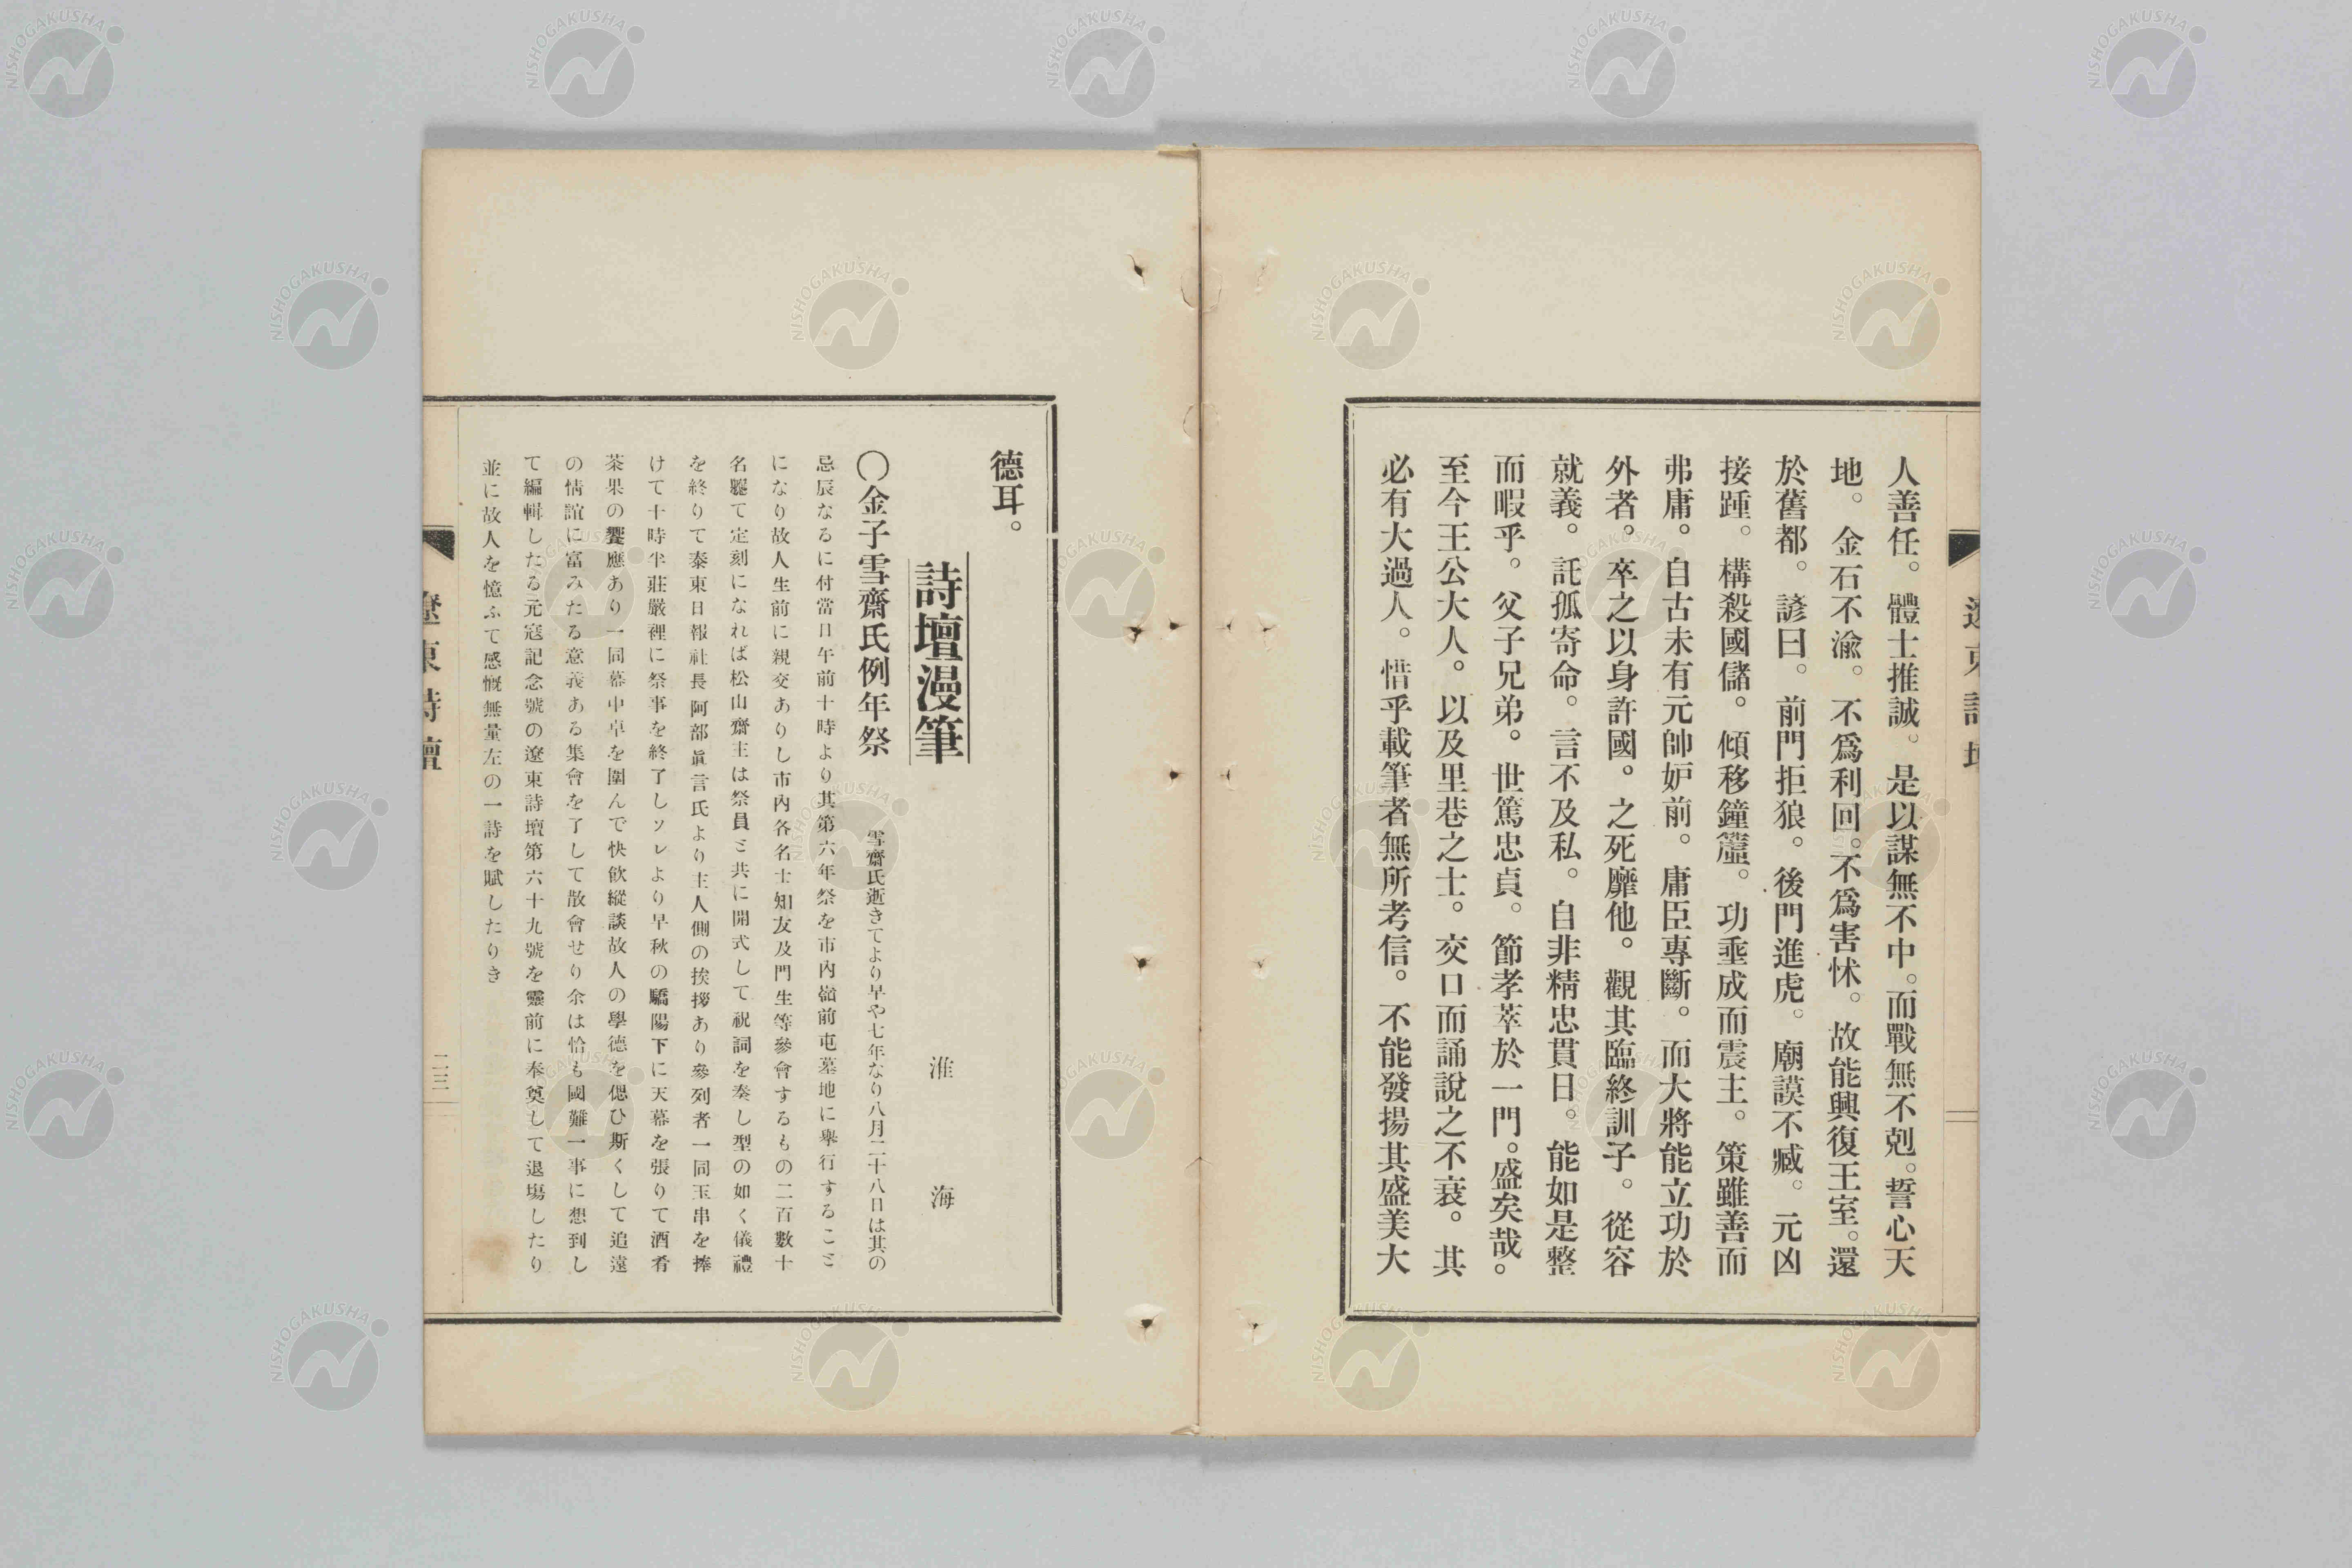 人善任。體士推誠。是以謀無不中。而戰無不剋。誓心天
地。金石不渝。不爲利回。不爲害怵。故能興復王室。還
於舊都。諺曰。前門拒狼。後門進虎。廟謨不臧。元凶
接踵。構殺國儲。傾移鐘簴。功垂成而震主。策雖善而
弗庸。自古未有元帥妒前。庸臣專斷。而大將能立功於
外者。卒之以身許國。之死靡他。觀其臨終訓子。從容
就義。託孤寄命。言不及私。自非精忠貫日。能如是整
而暇乎。父子兄弟。世篤忠貞。節孝萃於一門。盛矣哉。
至今王公大人。以及里巷之士。交口而誦說之不衰。其
必有大過人。惜乎載筆者無所考信。不能發揚其盛美大
德耳。
詩壇漫筆
淮海
〇金子雪齋氏例年祭 雪齋氏逝きてより早や七年なり八月二十八日は其の
忌辰なるに付當日午前十時より其第六年祭を市內嶺前屯墓地に擧行するこミ
になり故人生前に親交ありし市內各名士知友及門生等參會するもの二百數十
名軈て定刻になれば松山齋主は祭員ミ共に開式して祝詞を奏し型の如く儀禮
を終りて泰東日報社長阿部眞言氏より主人側の挨拶あり參列者一同玉串を捧
けて十時半莊嚴裡に祭事を終了しソレより早秋の驕陽下に天幕を張りて酒肴
茶果の饗應あり一同幕中卓を圍んで快飲縱談故人の學德を偲ひ斯くして追遠
の情誼に富みたる意義ある集會を了して散會せり余は恰も國難一事に想到し
て編輯したる元寇記念號の遼東詩壇第六十九號を靈前に奉奠して退塲したり
並に故人を憶ふて感慨無量左の一詩を賦したりき
遼東詩壇
二三
NISHOGAKUSHA